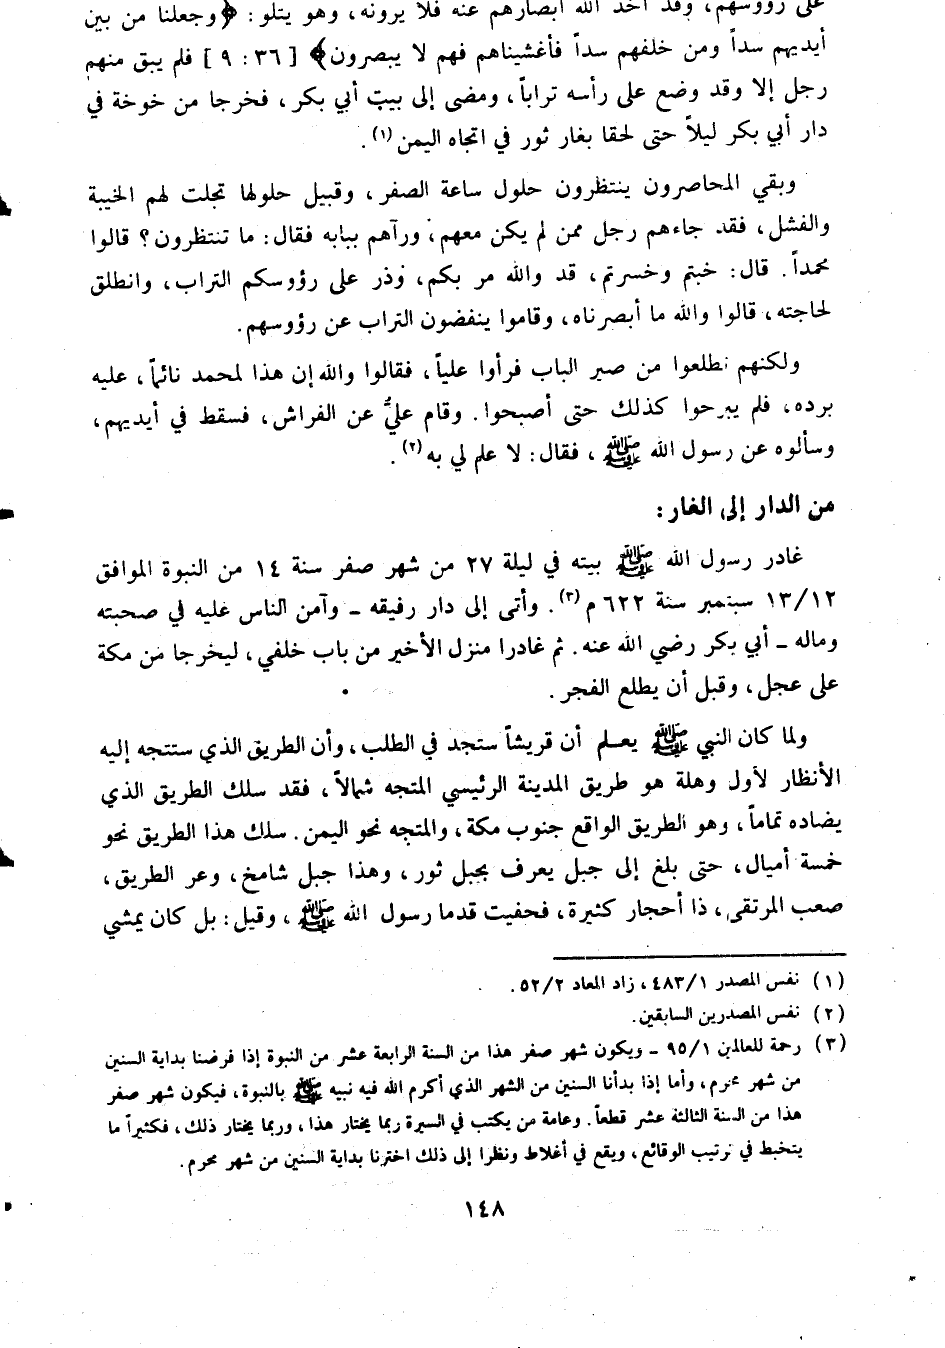 على رؤوسهم، وقد أخذ الله أبصارهم عنه فلا يرونه، وهو يتلو: ﴿وجعلنا من بين
أيديهم سداً ومن خلفهم سداً فأغشيناهم فهم لا يبصرون﴾ [٣٦ : ٩] فلم يبق منهم
رجل إلا وقد وضع على رأسه تراباً، ومضى إلى بيت أبي بكر، فخرجا من خوخة في
دار أبي بكر ليلاً حتى لحقا بغار ثور في اتجاه اليمن(١).
وبقي المحاصرون ينتظرون حلول ساعة الصفر، وقبيل حلولها تجلت لهم الخيبة
والفشل، فقد جاءهم رجل ممن لم يكن معهم، ورآهم ببابه فقال: ما تنتظرون؟ قالوا
محمداً. قال: خبتم وخسرتم، قد والله مر بكم، وذر على رؤوسكم التراب، وانطلق
لحاجته، قالوا والله ما أبصرناه، وقاموا ينفضون التراب عن رؤوسهم.
ولكنهم تطلعوا من صير الباب فرأوا علياً، فقالوا والله إن هذا لمحمد نائماً، عليه
برده، فلم يبرحوا كذلك حتى أصبحوا. وقام عليٌّ عن الفراش، فسقط في أيديهم،
وسألوه عن رسول الله ﷺ، فقال: لا علم لي به(٢).
من الدار إلى الغار:
غادر رسول الله ﷺ بيته في ليلة ٢٧ من شهر صفر سنة ١٤ من النبوة الموافق
١٣/١٢ سبتمبر سنة ٦٢٢ م(٣). وأتى إلى دار رفيقه ـ وآمن الناس عليه في صحبته
وماله ـ أبي بكر رضي الله عنه. ثم غادرا منزل الأخير من باب خلفي، ليخرجا من مكة
على عجل، وقبل أن يطلع الفجر.
ولما كان النبي ﷺ يعلم أن قريشاً ستجد في الطلب، وأن الطريق الذي ستتجه إليه
الأنظار لأول وهلة هو طريق المدينة الرئيسي المتجه شمالاً، فقد سلك الطريق الذي
يضاده تماماً، وهو الطريق الواقع جنوب مكة، والمتجه نحو اليمن. سلك هذا الطريق نحو
خمسة أميال، حتى بلغ إلى جبل يعرف بجبل ثور، وهذا جبل شامخ، وعر الطريق،
صعب المرتقى، ذا أحجار كثيرة، فحفيت قدما رسول الله ﷺ، وقيل: بل كان يمشي
(١) نفس المصدر ٤٨٣/١، زاد المعاد ٥٢/٢.
(٢) نفس المصدرين السابقين.
(٣) رحمة للعالمين ٩٥/١ ـ ويكون شهر صفر هذا من السنة الرابعة عشر من النبوة إذا فرضنا بداية السنين
من شهر محرم، وأما إذا بدأنا السنين من الشهر الذي أكرم الله فيه نبيه ﷺ بالنبوة، فيكون شهر صفر
هذا من السنة الثالثة عشر قطعاً. وعامة من يكتب في السيرة ربما يختار هذا، وربما يختار ذلك، فكثيراً ما
يتخبط في ترتيب الوقائع، ويقع في أغلاط ونظرا إلى ذلك اخترنا بداية السنين من شهر محرم.
١٤٨